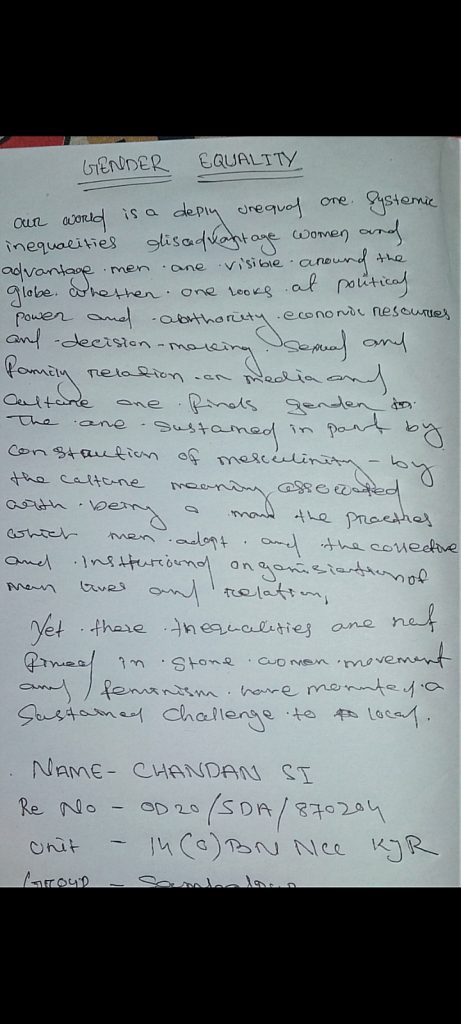 GENDER EQUALITY
our world is a deply unequal one. Systemic
inequalities disadvantage women and
advantage men are visible around the
globe. whether one looks at political
power and authority. economic resources
and -decision-making. Sexual and
family relation or media and
Culture one finds gender
The are sustained in part by
construction of mesculinity - by
the culture meaning associated
with being a man the practies
which men adopt. and the collective
and institutional organisiation of
men lives and relation,
Yet there inequalities are not
fined in stone women movement
and feminism have mounted a
Sustained challenge to local.
NAME- CHANDAN SI
Re No - OD20/SDA/870204
Unit - 14(O)BN NCC KJR
GROUP -